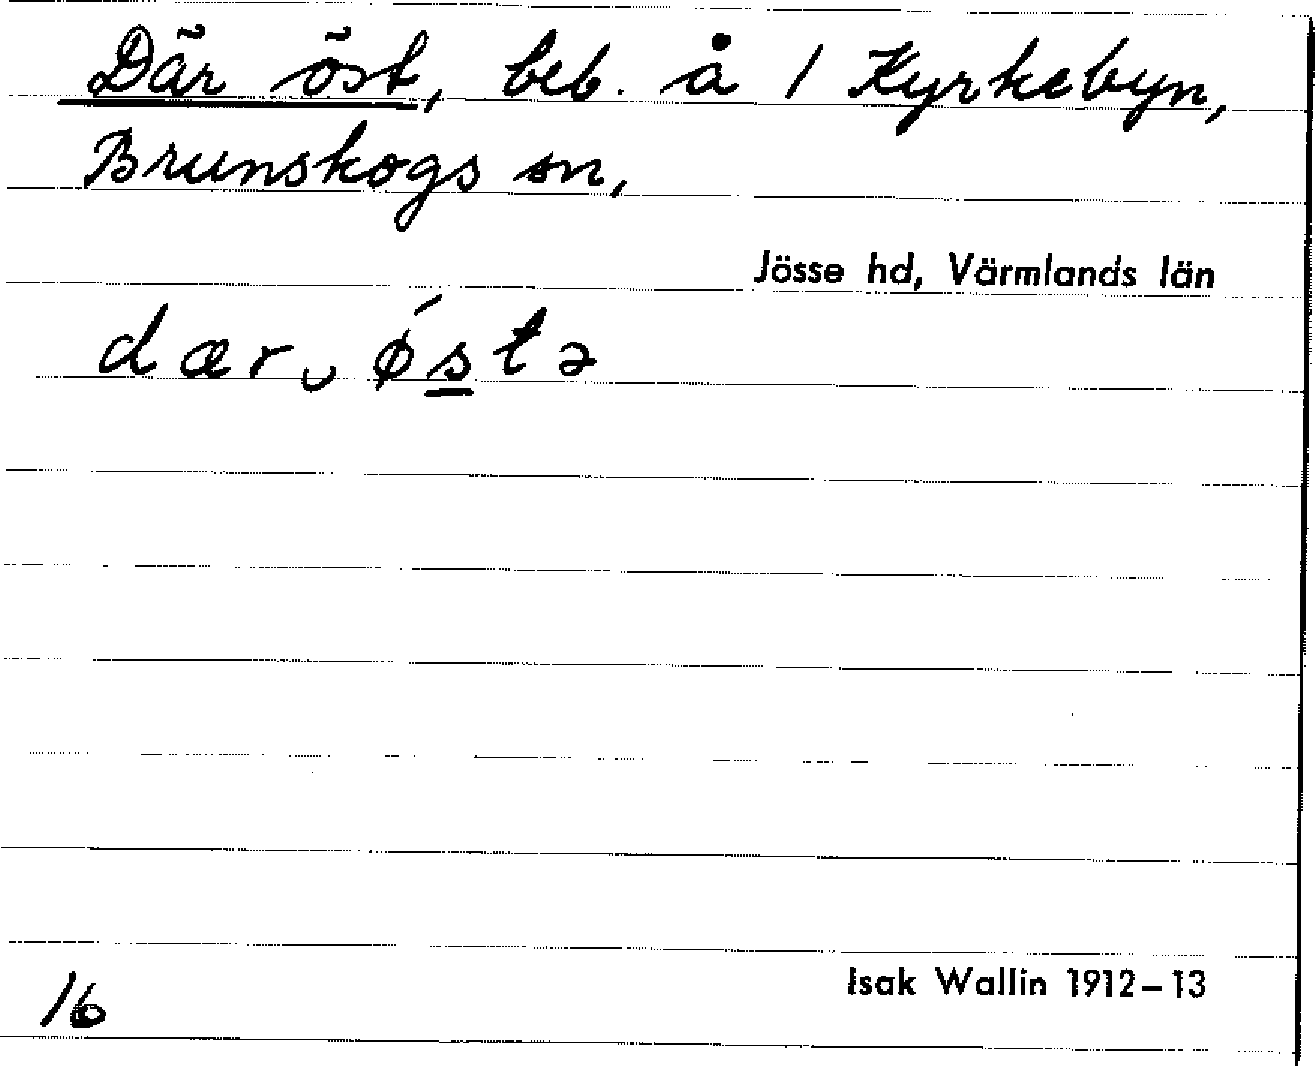 Där öst, beb. å 1 Kyrkebyn,
Brunskogs sn,
Jösse hd, Värmlands län
dær‿ǿstə
16
Isak Wallin 1912–13